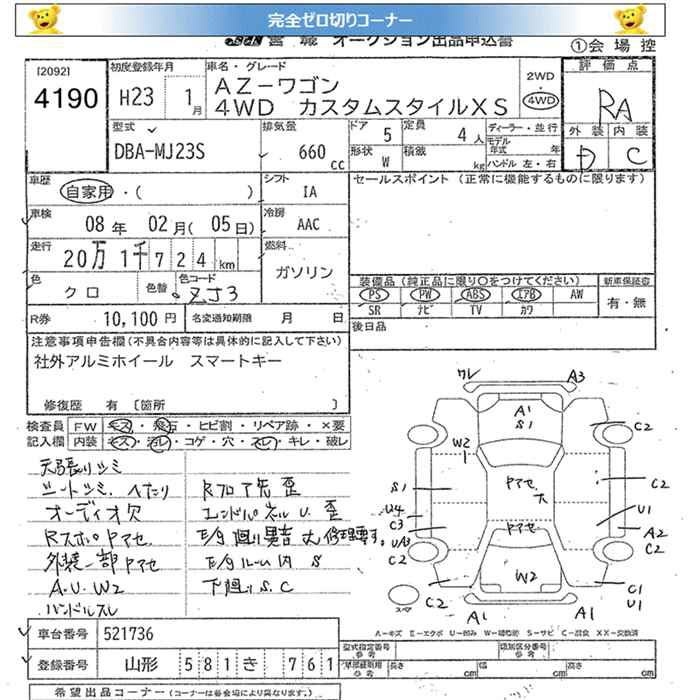 完全ゼロ切りコーナー
オークション出品申込書
①会場控
[2092]
4190
初度登録年月
H23 1月
車名・グレード
AZ-ワゴン
4WD カスタムスタイルXS
2WD
4WD
評価点
RA
外装 内装
D C
型式
DBA-MJ23S
排気量
660 cc
ドア 5
定員 4人
形状 W
積載 kg
ディーラー・並行
モデル年式 年
ハンドル 左・右
車歴
自家用・( )
シフト
IA
車検
08年 02月(05日)
冷房
AAC
走行
20万1千724km
燃料
ガソリン
色
クロ
色替
色コード
ZJ3
R券 10,100円
名変通知期限 月 日
セールスポイント (正常に機能するものに限ります)
装備品 (純正品に限り○をつけてください)
新車保証書
PS PW ABS エアB AW
有・無
SR ナビ TV カワ
後日品
注意事項申告欄(不具合内容等は具体的に記入して下さい)
社外アルミホイール スマートキー
修復歴 有 [箇所 ]
検査員記入欄
FW キズ・飛石・ヒビ割・リペア跡・×要
内装 キズ・汚レ・コゲ・穴・スレ・キレ・破レ
天張りシミ
シートシミ、へたり
オーディオ欠
Rスポヤアセ
外装一部ヤアセ
A.U.W2
ハンドルスレ
Rフロア先歪
エンドパネルU.歪
E/g廻り異音大修理要す。
E/gルーム内S
下廻りS.C
ワレ
A3
A1
S1
C2
W2
ヤアセ
大
S1
C2
U4
C3
U1
A2
UA3
C2
ヤアセ
C2
W2
C2
C1
U1
スペア
A1
A1
A-キズ E-エクボ U-凹み W-補修跡 S-サビ C-腐食 XX-交換済
車台番号 521736
登録番号 山形 581 き 761
型式指定番号 参考
類別区分番号 参考
長さ cm
幅 cm
高さ cm
希望出品コーナー (コーナーは各会場により異なります。)